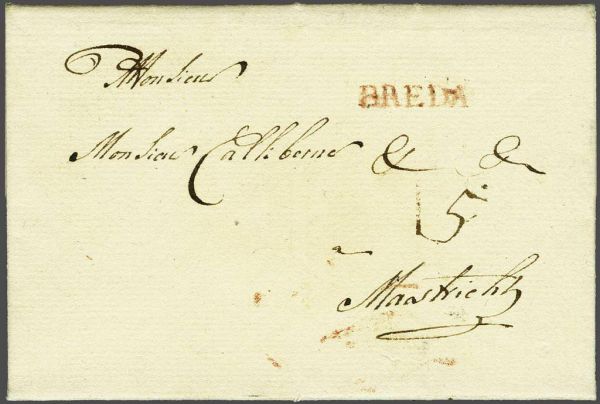 Monsieur
BREDA
Monsieur Calkberner & &
5
a
Maastricht